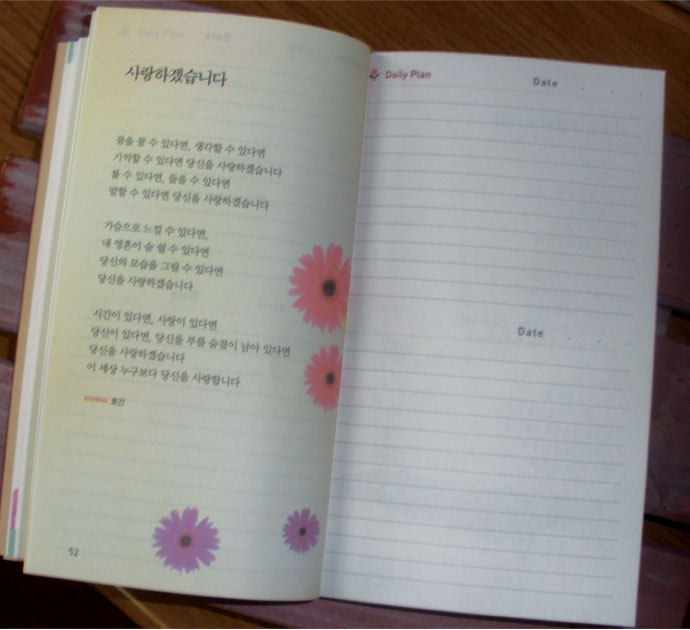 사랑하겠습니다
꿈을 꿀 수 있다면, 생각할 수 있다면
기억할 수 있다면 당신을 사랑하겠습니다
볼 수 있다면, 들을 수 있다면
말할 수 있다면 당신을 사랑하겠습니다
가슴으로 느낄 수 있다면,
내 영혼이 숨 쉴 수 있다면
당신의 모습을 그릴 수 있다면
당신을 사랑하겠습니다
시간이 있다면, 사랑이 있다면
당신이 있다면, 당신을 부를 숨결이 남아 있다면
당신을 사랑하겠습니다
이 세상 누구보다 당신을 사랑합니다
52
Daily Plan
Date
Date